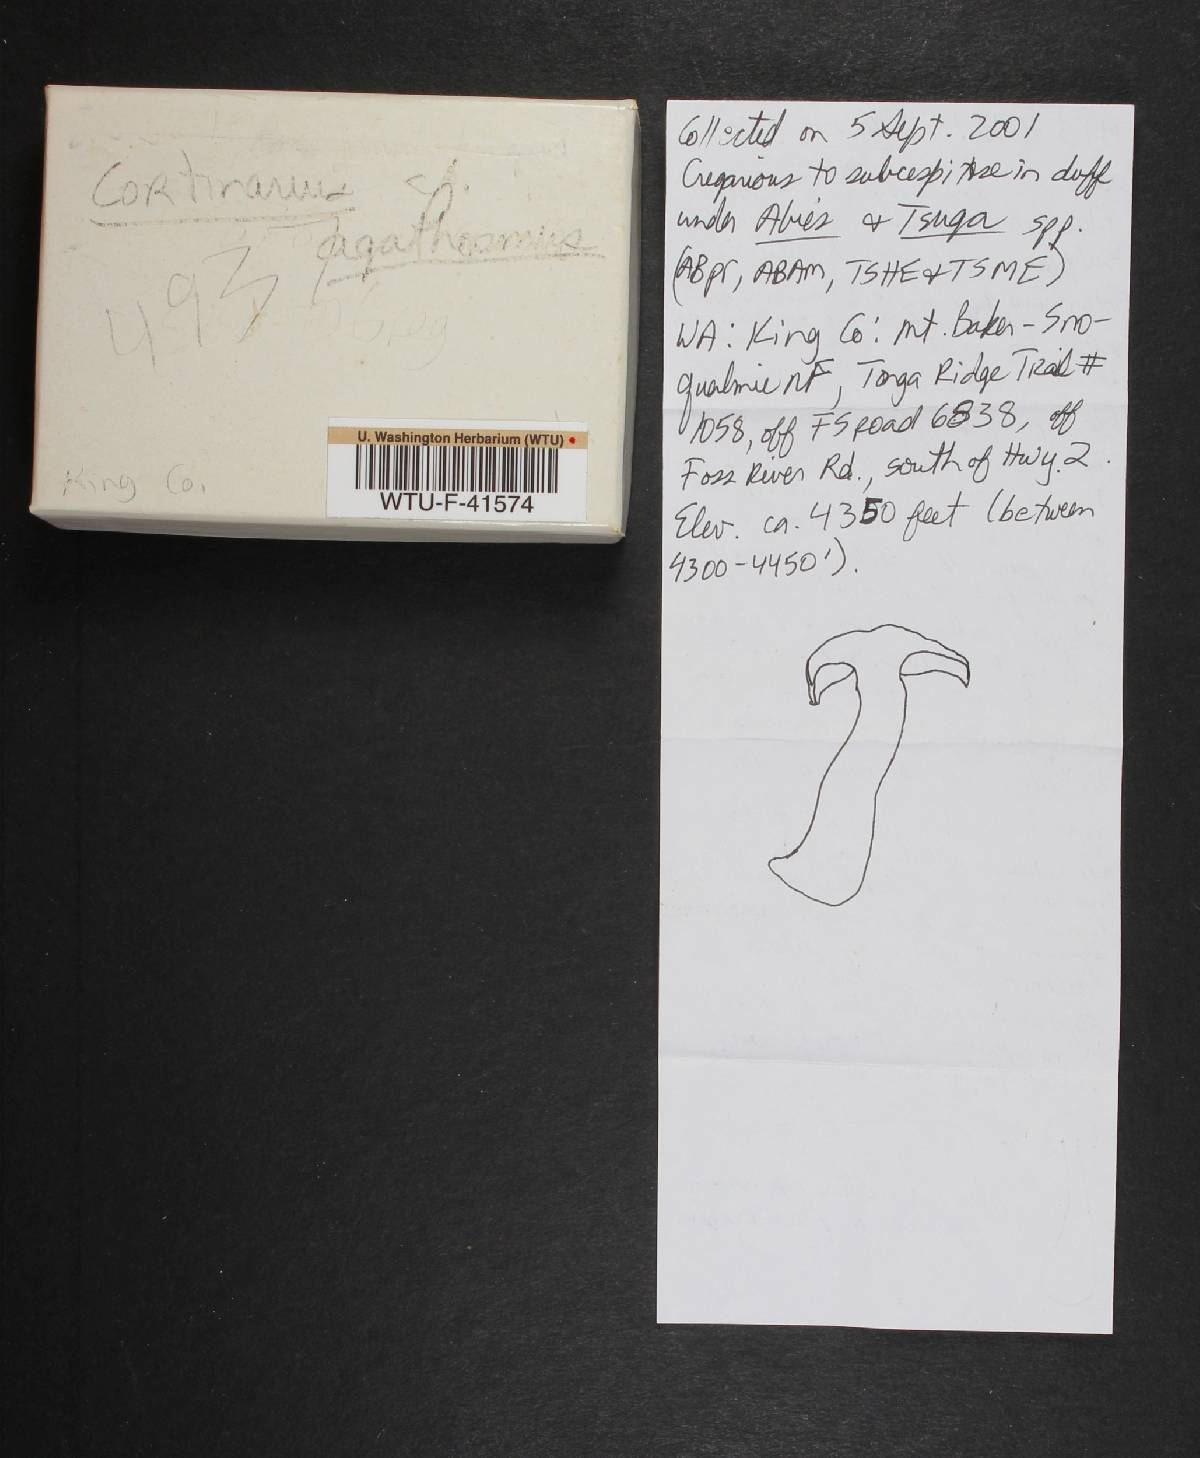 Cortinarius cf.
agathosmus
493
King Co.
U. Washington Herbarium (WTU)
WTU-F-41574
Collected on 5 Sept. 2001
Gregarious to subcespitose in duff
under Abies & Tsuga spp.
(ABpr, ABAM, TSHE & TSME)
WA: King Co: Mt. Baker-Sno-
qualmie NF, Tonga Ridge Trail #
1058, off FS road 6838, off
Foss River Rd., south of Hwy. 2.
Elev. ca. 4350 feet (between
4300-4450').